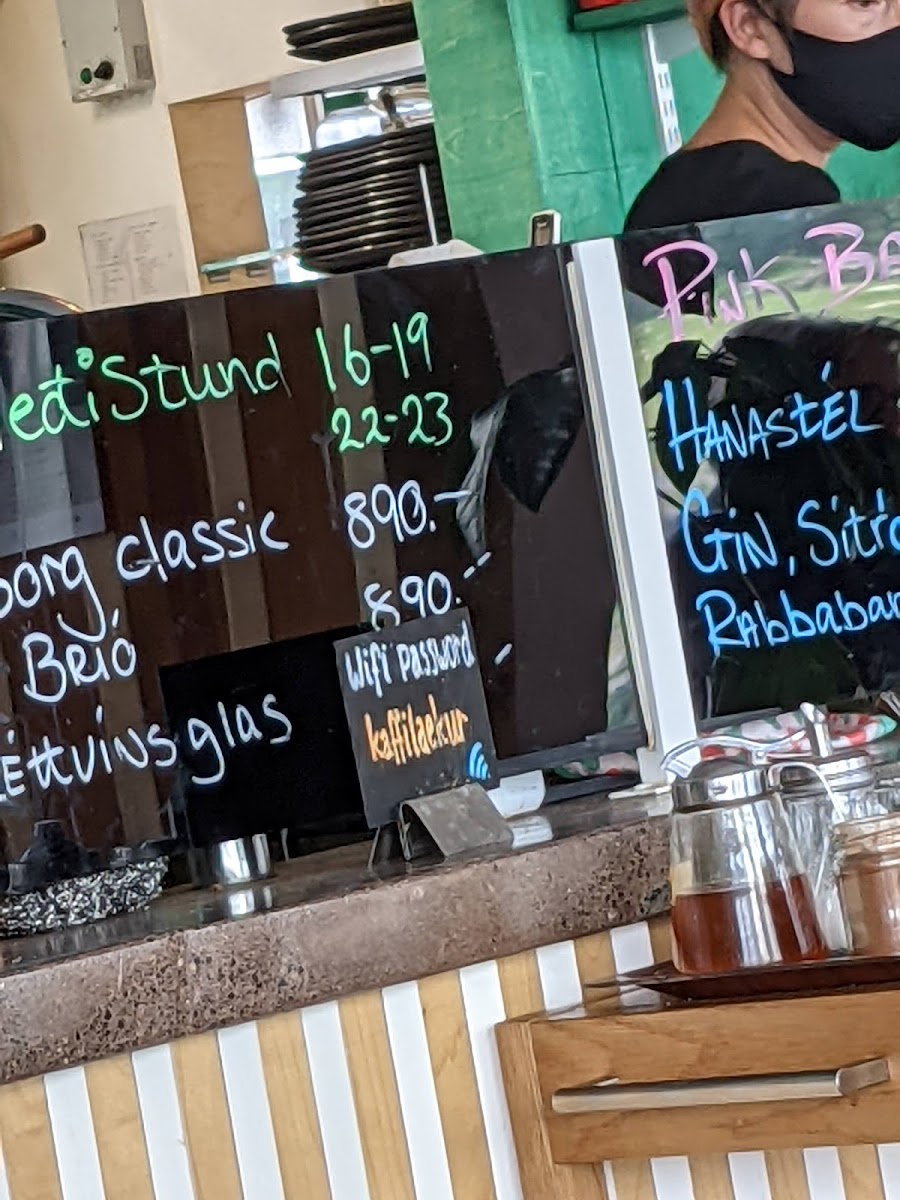 ediStund 16-19
22-23
borg classic 890.-
Brió 890.-
Léttvíns glas
Wifi password
kaffilaekur
Pink Ba
Hanastél
Gin, Sítró
Rabbabar